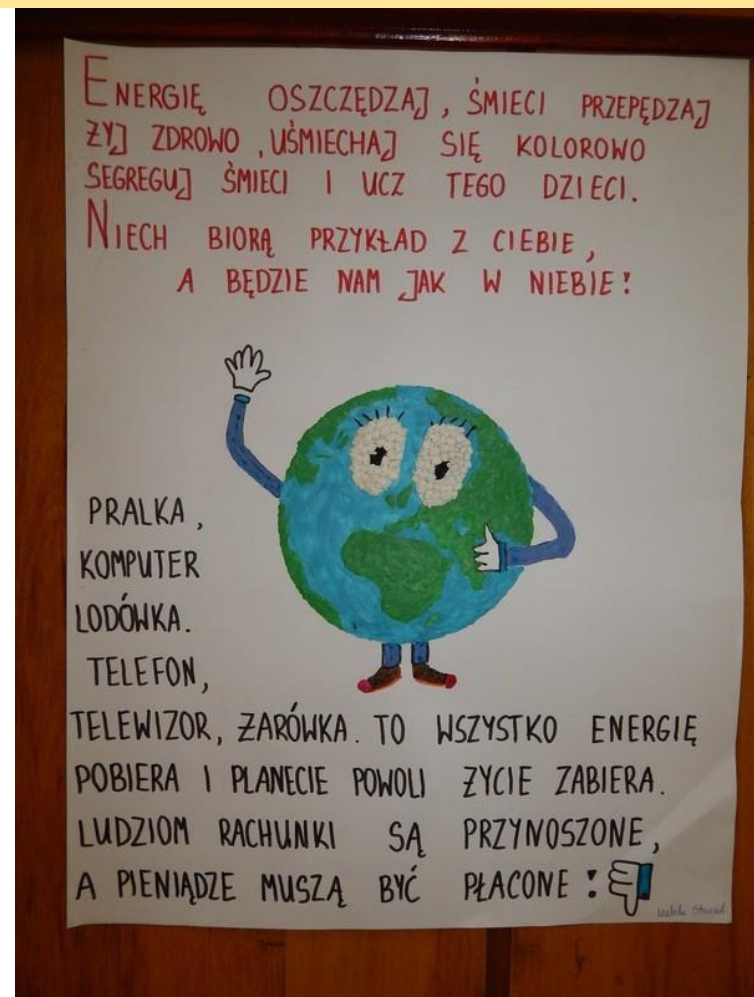 ENERGIĘ OSZCZĘDZAJ, ŚMIECI PRZEPĘDZAJ
ŻYJ ZDROWO, UŚMIECHAJ SIĘ KOLOROWO
SEGREGUJ ŚMIECI I UCZ TEGO DZIECI.
NIECH BIORĄ PRZYKŁAD Z CIEBIE,
A BĘDZIE NAM JAK W NIEBIE!
PRALKA,
KOMPUTER
LODÓWKA.
TELEFON,
TELEWIZOR, ŻARÓWKA. TO WSZYSTKO ENERGIĘ
POBIERA I PLANECIE POWOLI ŻYCIE ZABIERA.
LUDZIOM RACHUNKI SĄ PRZYNOSZONE,
A PIENIĄDZE MUSZĄ BYĆ PŁACONE!